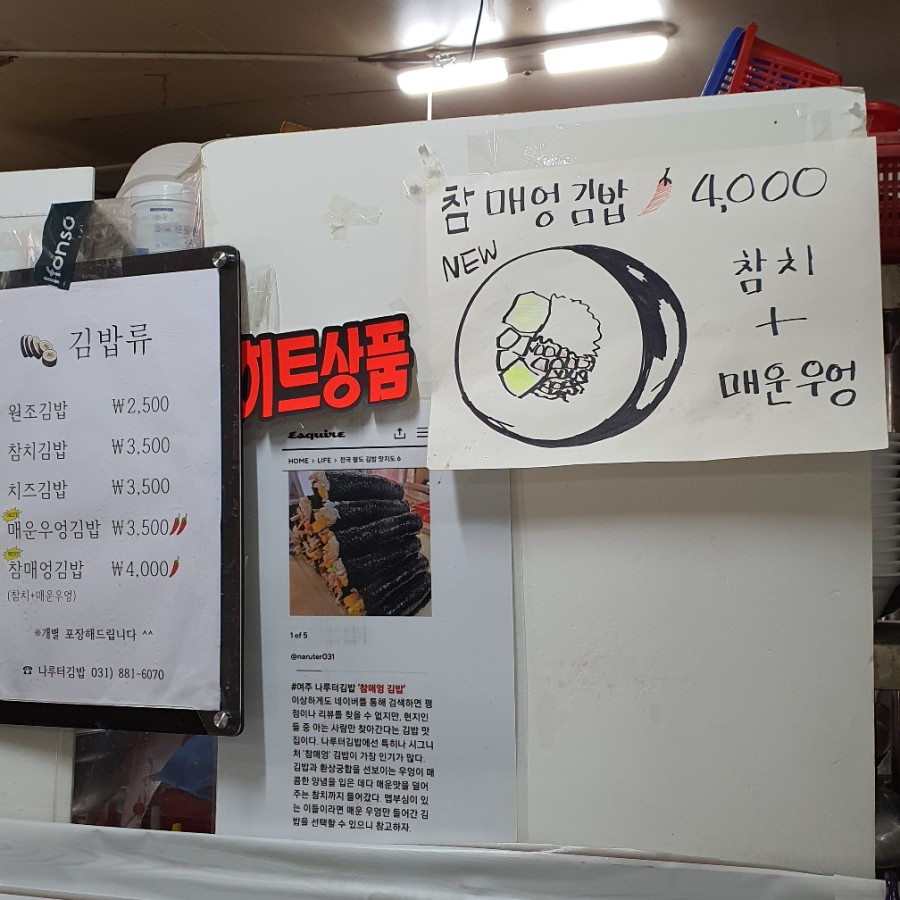 lfonso
김밥류
원조김밥 ₩2,500
참치김밥 ₩3,500
치즈김밥 ₩3,500
매운우엉김밥 ₩3,500
참매엉김밥 ₩4,000
(참치+매운우엉)
※개별 포장해드립니다 ^^
☎ 나루터김밥 031) 881-6070
히트상품
Esquire
HOME > LIFE > 전국 팔도 김밥 맛지도 6
1 of 5
@naruter031
#여주 나루터김밥 '참매엉 김밥'
이상하게도 네이버를 통해 검색하면 평
점이나 리뷰를 찾을 수 없지만, 현지인
들 중 아는 사람만 찾아간다는 김밥 맛
집이다. 나루터김밥에선 특히나 시그니
처 '참매엉' 김밥이 가장 인기가 많다.
김밥과 환상궁합을 선보이는 우엉이 매
콤한 양념을 입은 데다 매운맛을 덜어
주는 참치까지 들어갔다. 맵부심이 있
는 이들이라면 매운 우엉만 들어간 김
밥을 선택할 수 있으니 참고하자.
참매엉김밥 4,000
NEW
참치
+
매운우엉